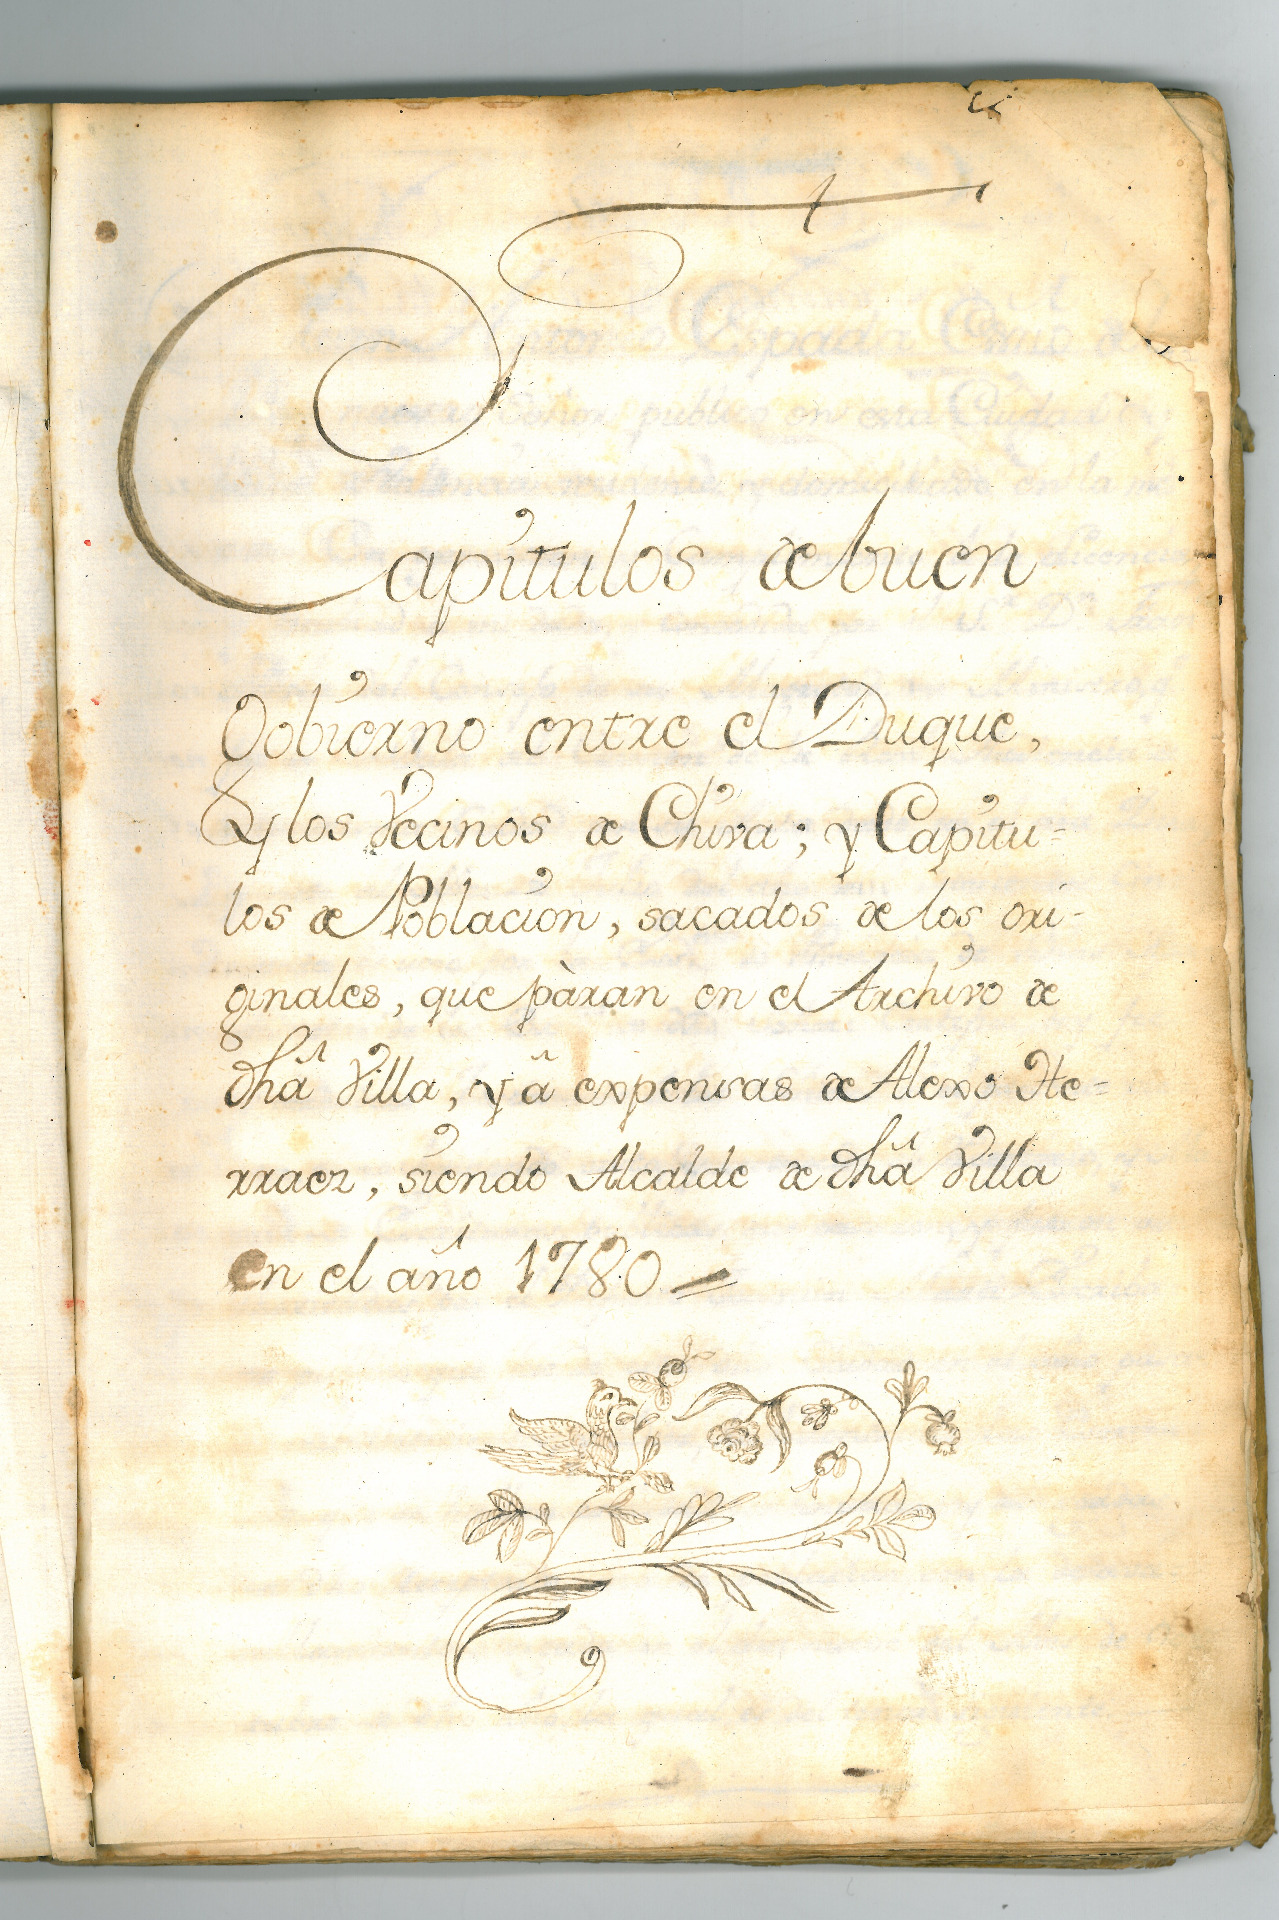 Capitulos de buen
Gobierno entre el Duque,
y los Vecinos de Chiva; y Capitu=
los de Poblacion, sacados de los ori-
ginales, que pàran en el Archivo de
dhâ Villa, y â expensas de Alexo He=
rraez, siendo Alcalde de dhâ Villa
en el año 1780